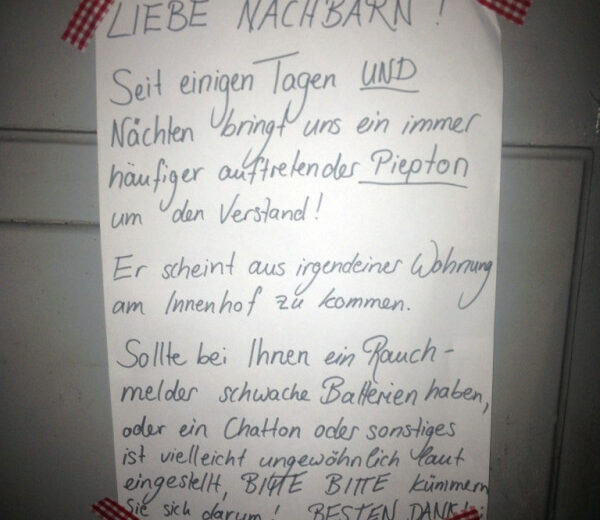 LIEBE NACHBARN !
Seit einigen Tagen UND
Nächten bringt uns ein immer
häufiger auftretender Piepton
um den Verstand!
Er scheint aus irgendeiner Wohnung
am Innenhof zu kommen.
Sollte bei Ihnen ein Rauch-
melder schwache Batterien haben,
oder ein Chatton oder sonstiges
ist vielleicht ungewöhnlich laut
eingestellt, BITTE BITTE kümmern
Sie sich darum! BESTEN DANK